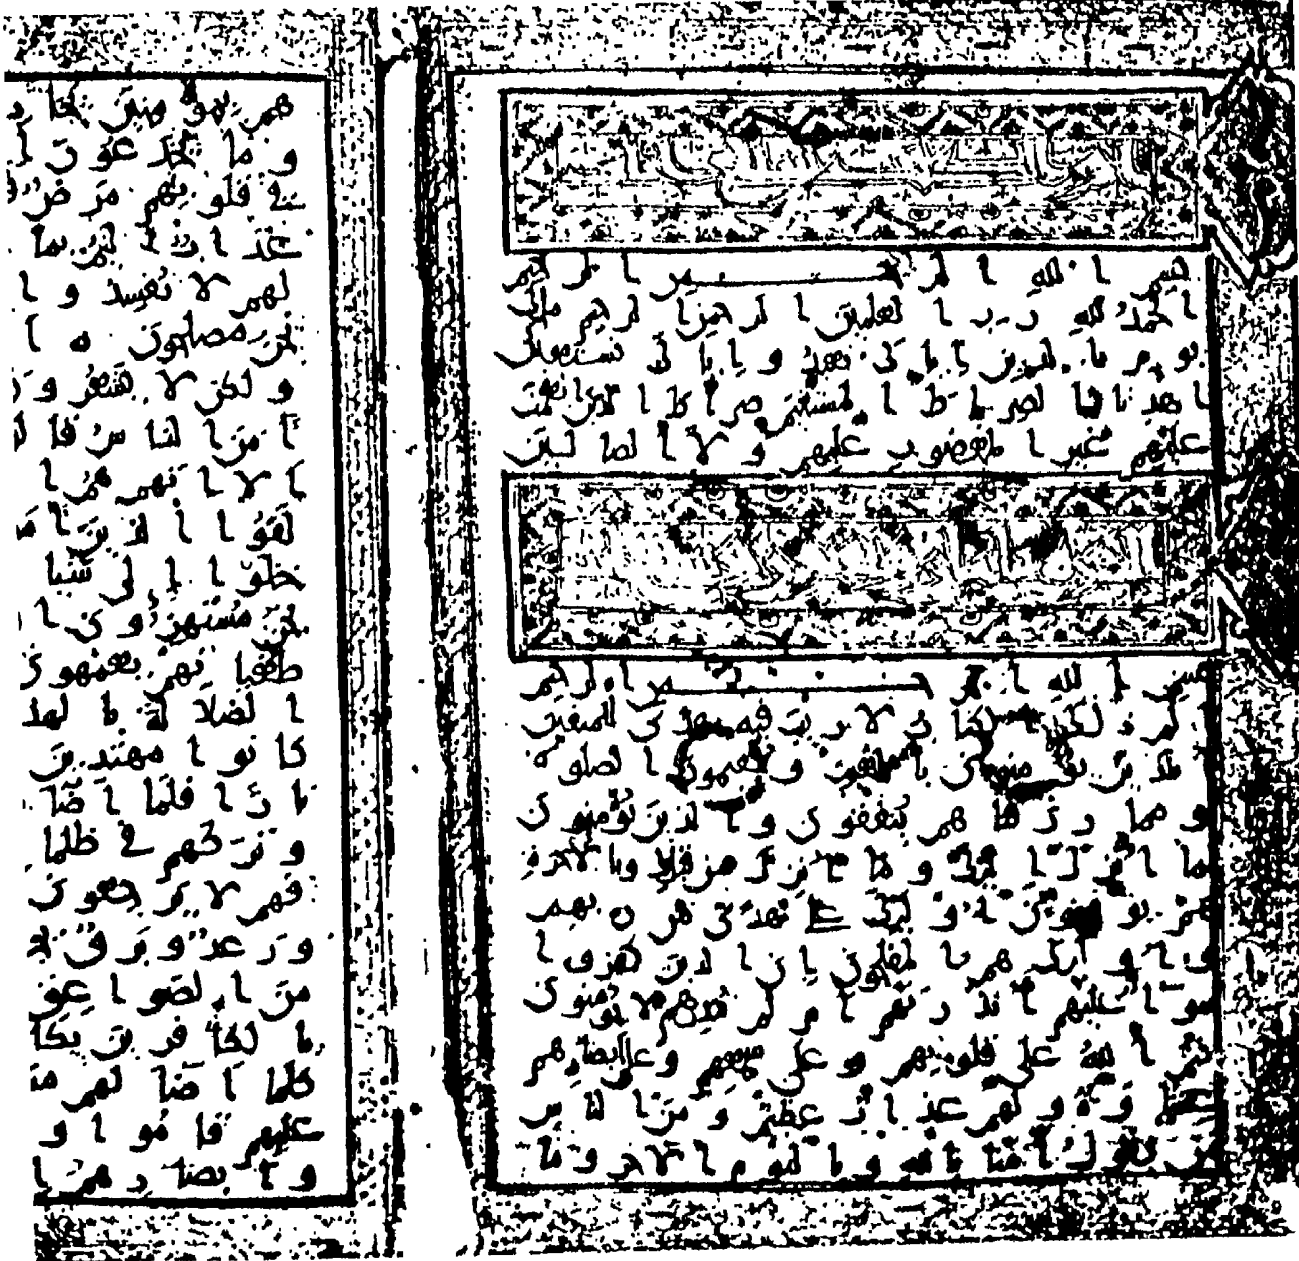 بسم الله الرحمن الرحيم
الحمد لله رب العلمين الرحمن الرحيم ملك
يوم الدين اياك نعبد و اياك نستعين
اهدنا الصراط المستقيم صراط الذين انعمت
عليهم غير المغضوب عليهم ولا الضالين
بسم الله الرحمن الرحيم
الم ذلك الكتاب لا ريب فيه هدى للمتقين
الذين يؤمنون بالغيب ويقيمون الصلوة
ومما رزقناهم ينفقون والذين يؤمنون
بما انزل اليك وما انزل من قبلك وبالاخرة
هم يوقنون اولئك على هدى من ربهم
واولئك هم المفلحون ان الذين كفروا
سوا عليهم انذرتهم ام لم تنذرهم لا يؤمنون
ختم الله على قلوبهم وعلى سمعهم وعلى ابصارهم
غشوة ولهم عذاب عظيم ومن الناس
من يقول امنا بالله وباليوم الاخر وما
هم بمؤمنين يخا د
وما يخدعون ا
في قلوبهم مرض
عذاب اليم بما
لهم لا تفسدوا
نحن مصلحون ا
ولكن لا يشعرون و
امن الناس قالوا
الا انهم هم ا
لقوا الذين
خلوا الى شيا
نحن مستهزؤن ا
طغيانهم يعمهون
الضلالة بالهد
كانوا مهتدين
نارا فلما اضا
وتركهم في ظلما
فهم لا يرجعون
ورعد وبرق
من الصواعق
بالكافرين يكا
كلما اضا لهم
عليهم قاموا و
وابصارهم ا